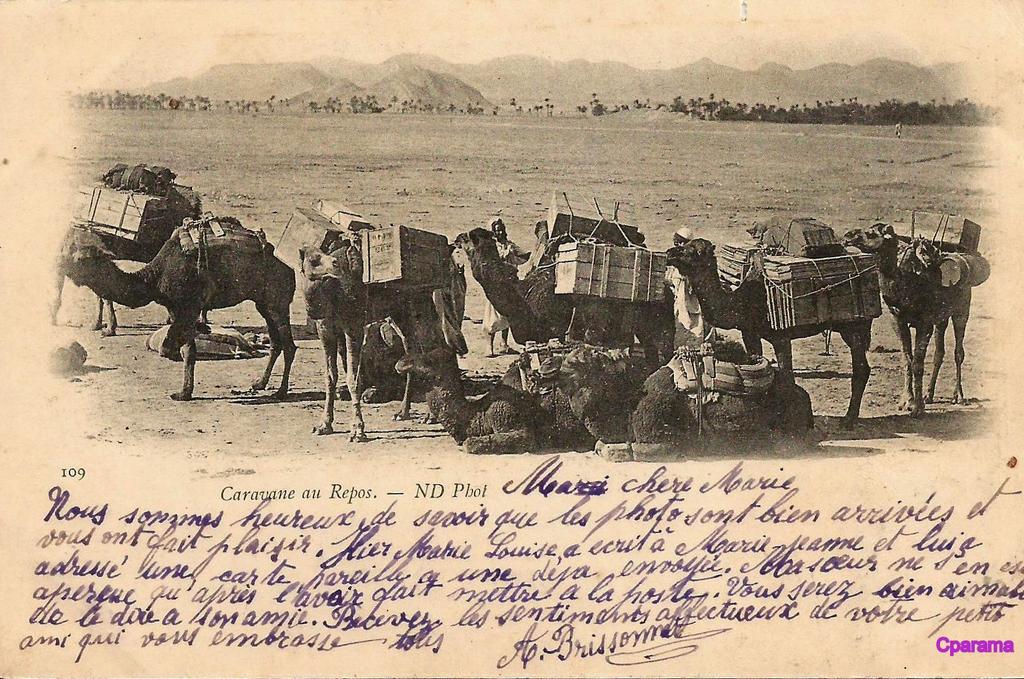 109
Caravane au Repos. — ND Phot
Ma chere Marie
Nous sommes heureux de savoir que les photo sont bien arrivées et
vous ont fait plaisir. Hier Marie Louise a ecrit à Marie-jeanne et lui a
adressé une carte pareille a une deja envoyée. Ma sœur ne s'en es
aperçue qu'après l'avoir fait mettre a la poste. Vous serez bien aimable
de le dire a son amie. Recevez les sentiments affectueux de votre petit
ami qui vous embrasse tous
A. Brissonnet
Cparama